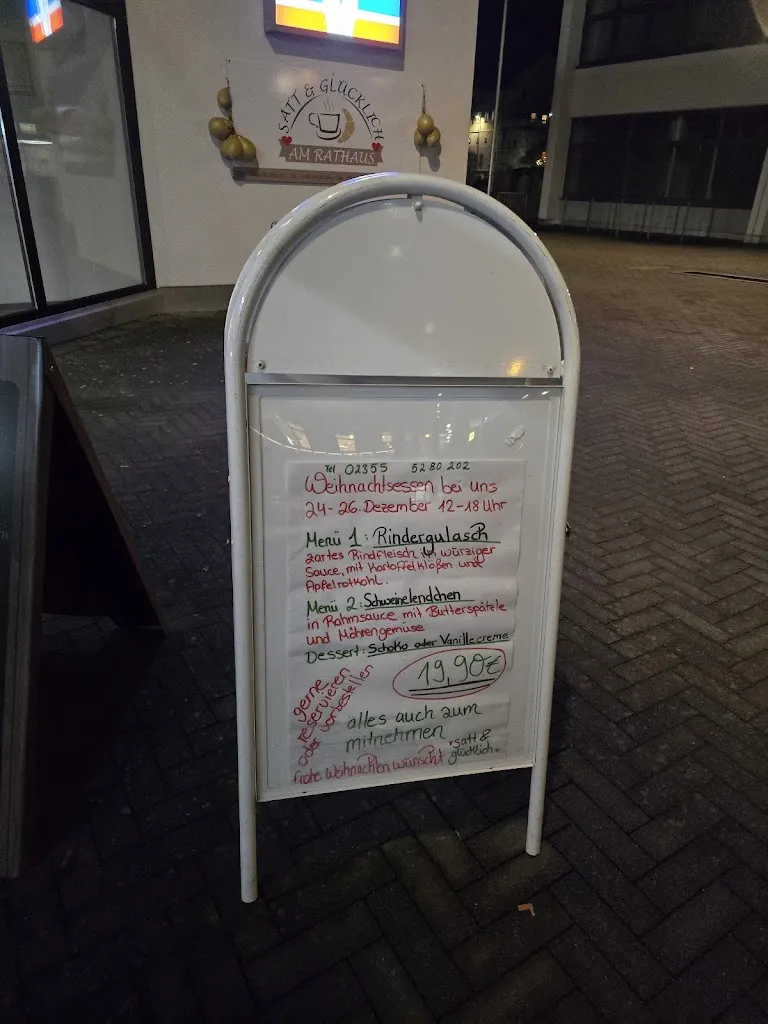 SATT & GLÜCKLICH
AM RATHAUS
Tel 02355 52 80 202
Weihnachtsessen bei uns
24-26. Dezember 12-18 Uhr
Menü 1: Rindergulasch
zartes Rindfleisch in würziger
Sauce, mit Kartoffelklößen und
Apfelrotkohl.
Menü 2: Schweinelendchen
in Rahmsauce mit Butterspätzle
und Möhrengemüse
Dessert: Schoko oder Vanillecreme
19,90€
gerne
reservieren
oder vorbestellen
alles auch zum
mitnehmen
frohe Weihnachten wünscht "satt &
glücklich"